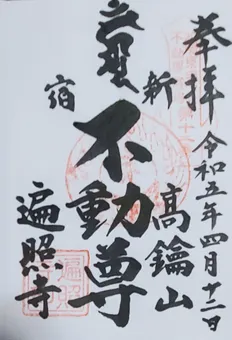 奉拝
令和五年四月十二日
新
高鑰山
不動尊
宿
遍照寺